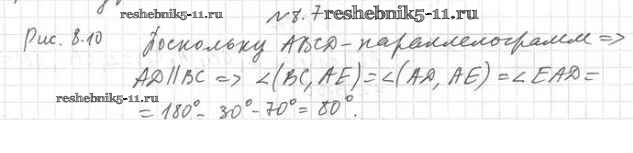 reshebnik5-11.ru №8.7 reshebnik5-11.ru
Рис. 8.10 Поскольку ABCD - параллелограмм =>
AD||BC => ∠(BC, AE) = ∠(AD, AE) = ∠EAD =
reshebnik5-11.ru
= 180° - 30° - 70° = 80°.